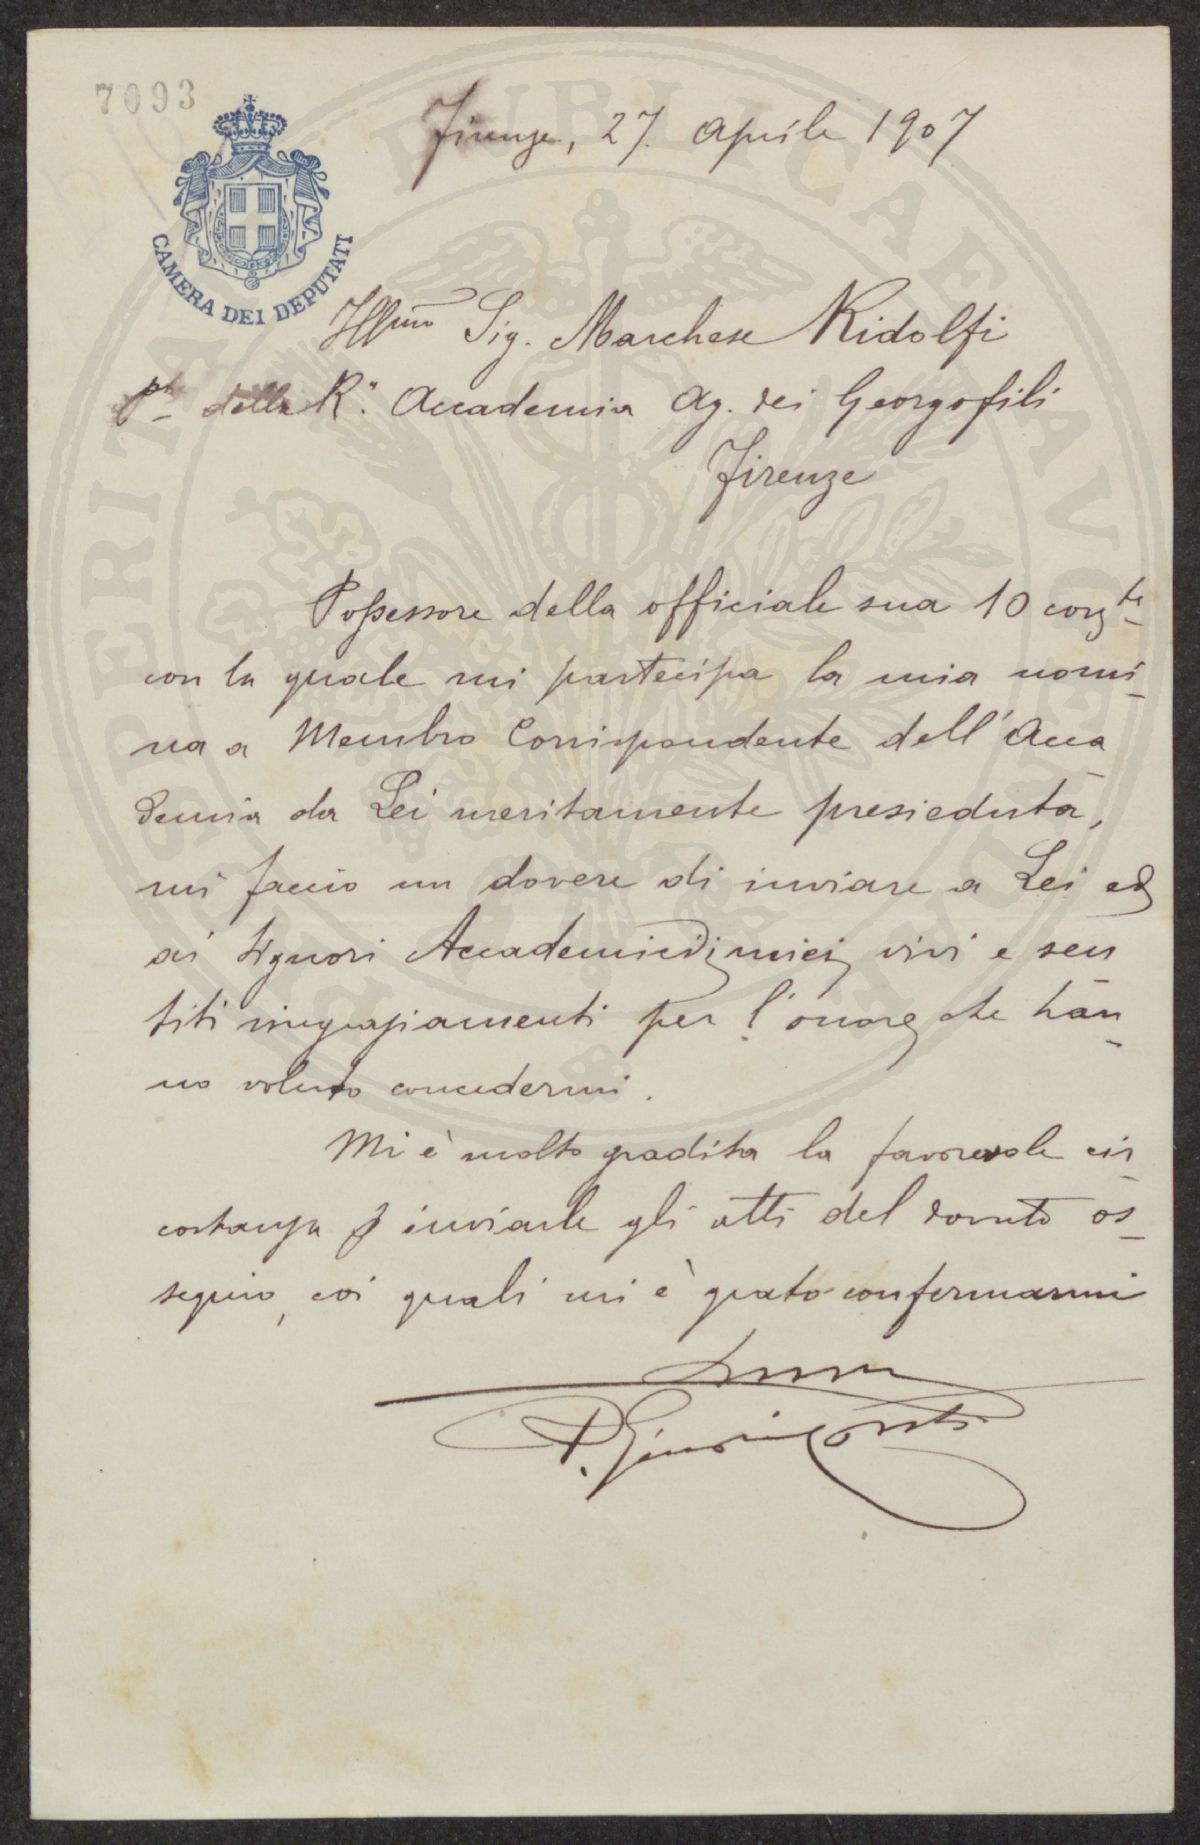 7093
CAMERA DEI DEPUTATI
Firenze, 27. Aprile 1907
Illmo Sig. Marchese Ridolfi
Pte della R.a Accademia Ag. dei Georgofili
Firenze
Possessore della officiale sua 10 corrte
con la quale mi partecipa la mia nomi
na a Membro Corrispondente dell'Acca
demia da Lei meritamente presieduta,
mi faccio un dovere di inviare a Lei ed
ai Signori Accademici i miei vivi e sen
titi ringraziamenti per l'onore che han
no voluto concedermi.
Mi è molto gradita la favorevole cir
costanza inviarle gli atti del dovuto os
sequio, coi quali mi è grato confermarmi
P. Ginori Conti